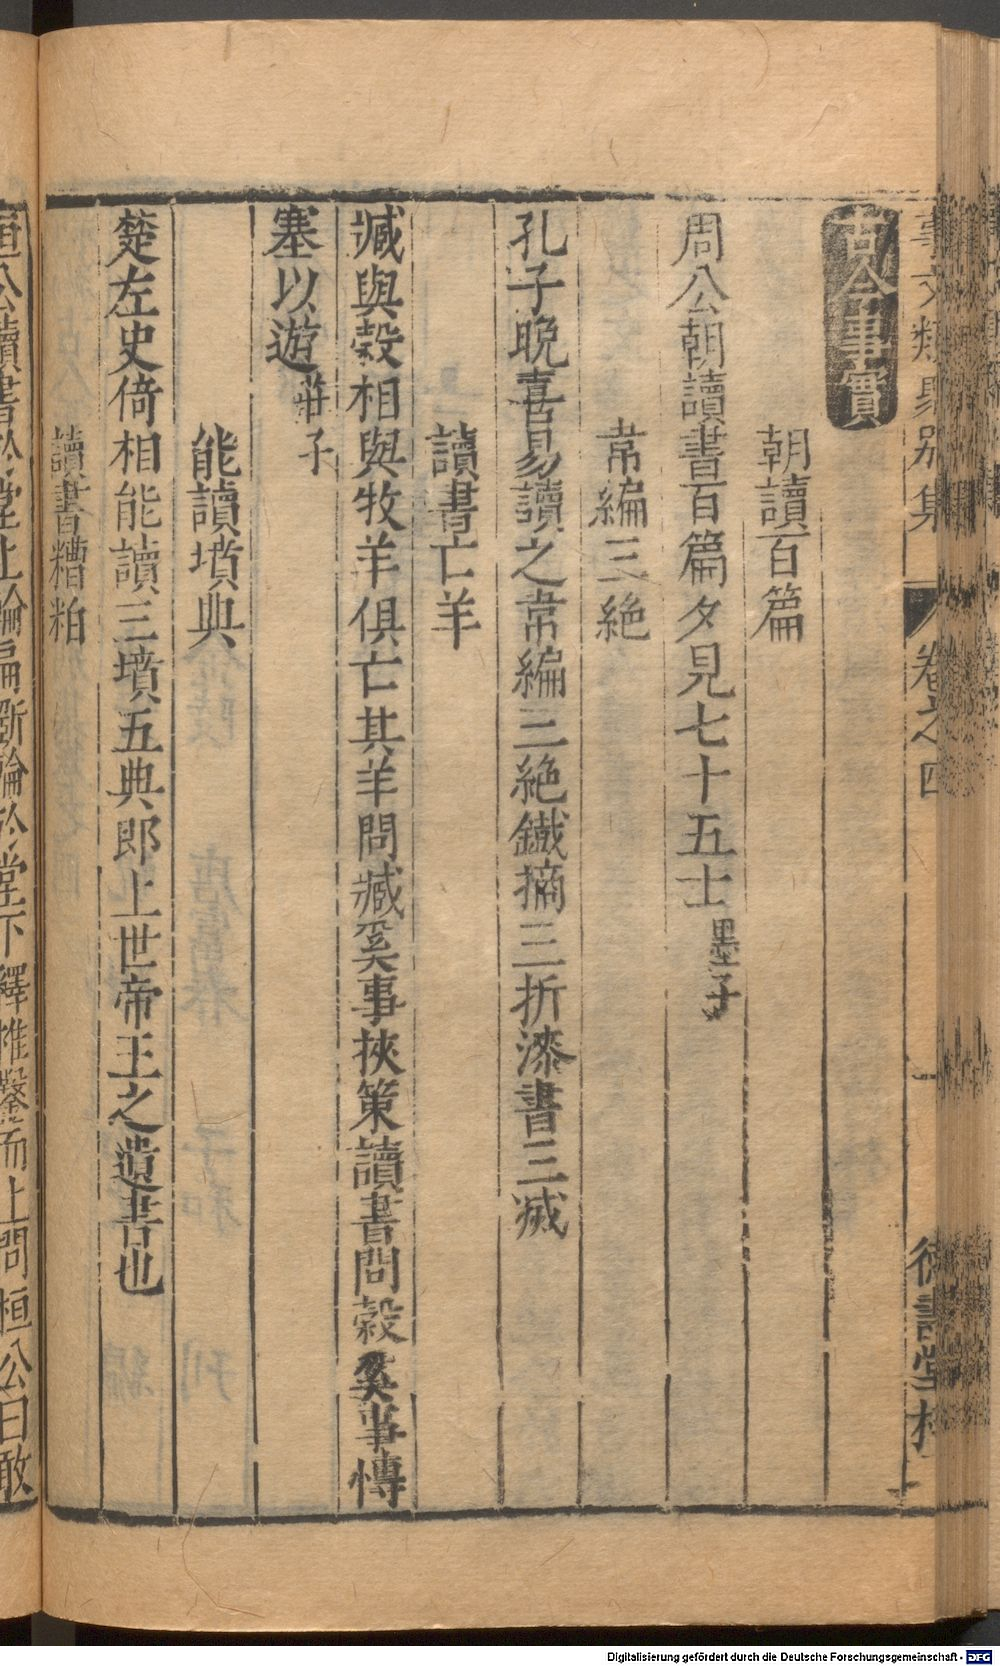 事文類聚別集 卷之四 一
古今事實
朝讀百篇
周公朝讀書百篇夕見七十五士墨子
韋編三絕
孔子晚喜易讀之韋編三絕鐵摘三折漆書三滅
讀書亡羊
臧與穀相與牧羊俱亡其羊問臧奚事挾策讀書問穀奚事博
塞以遊莊子
能讀墳典
楚左史倚相能讀三墳五典即上世帝王之遺書也
讀書糟粕
桓公讀書於堂上輪扁斲輪於堂下釋椎鑿而上問桓公曰敢
Digitalisierung gefördert durch die Deutsche Forschungsgemeinschaft - DFG